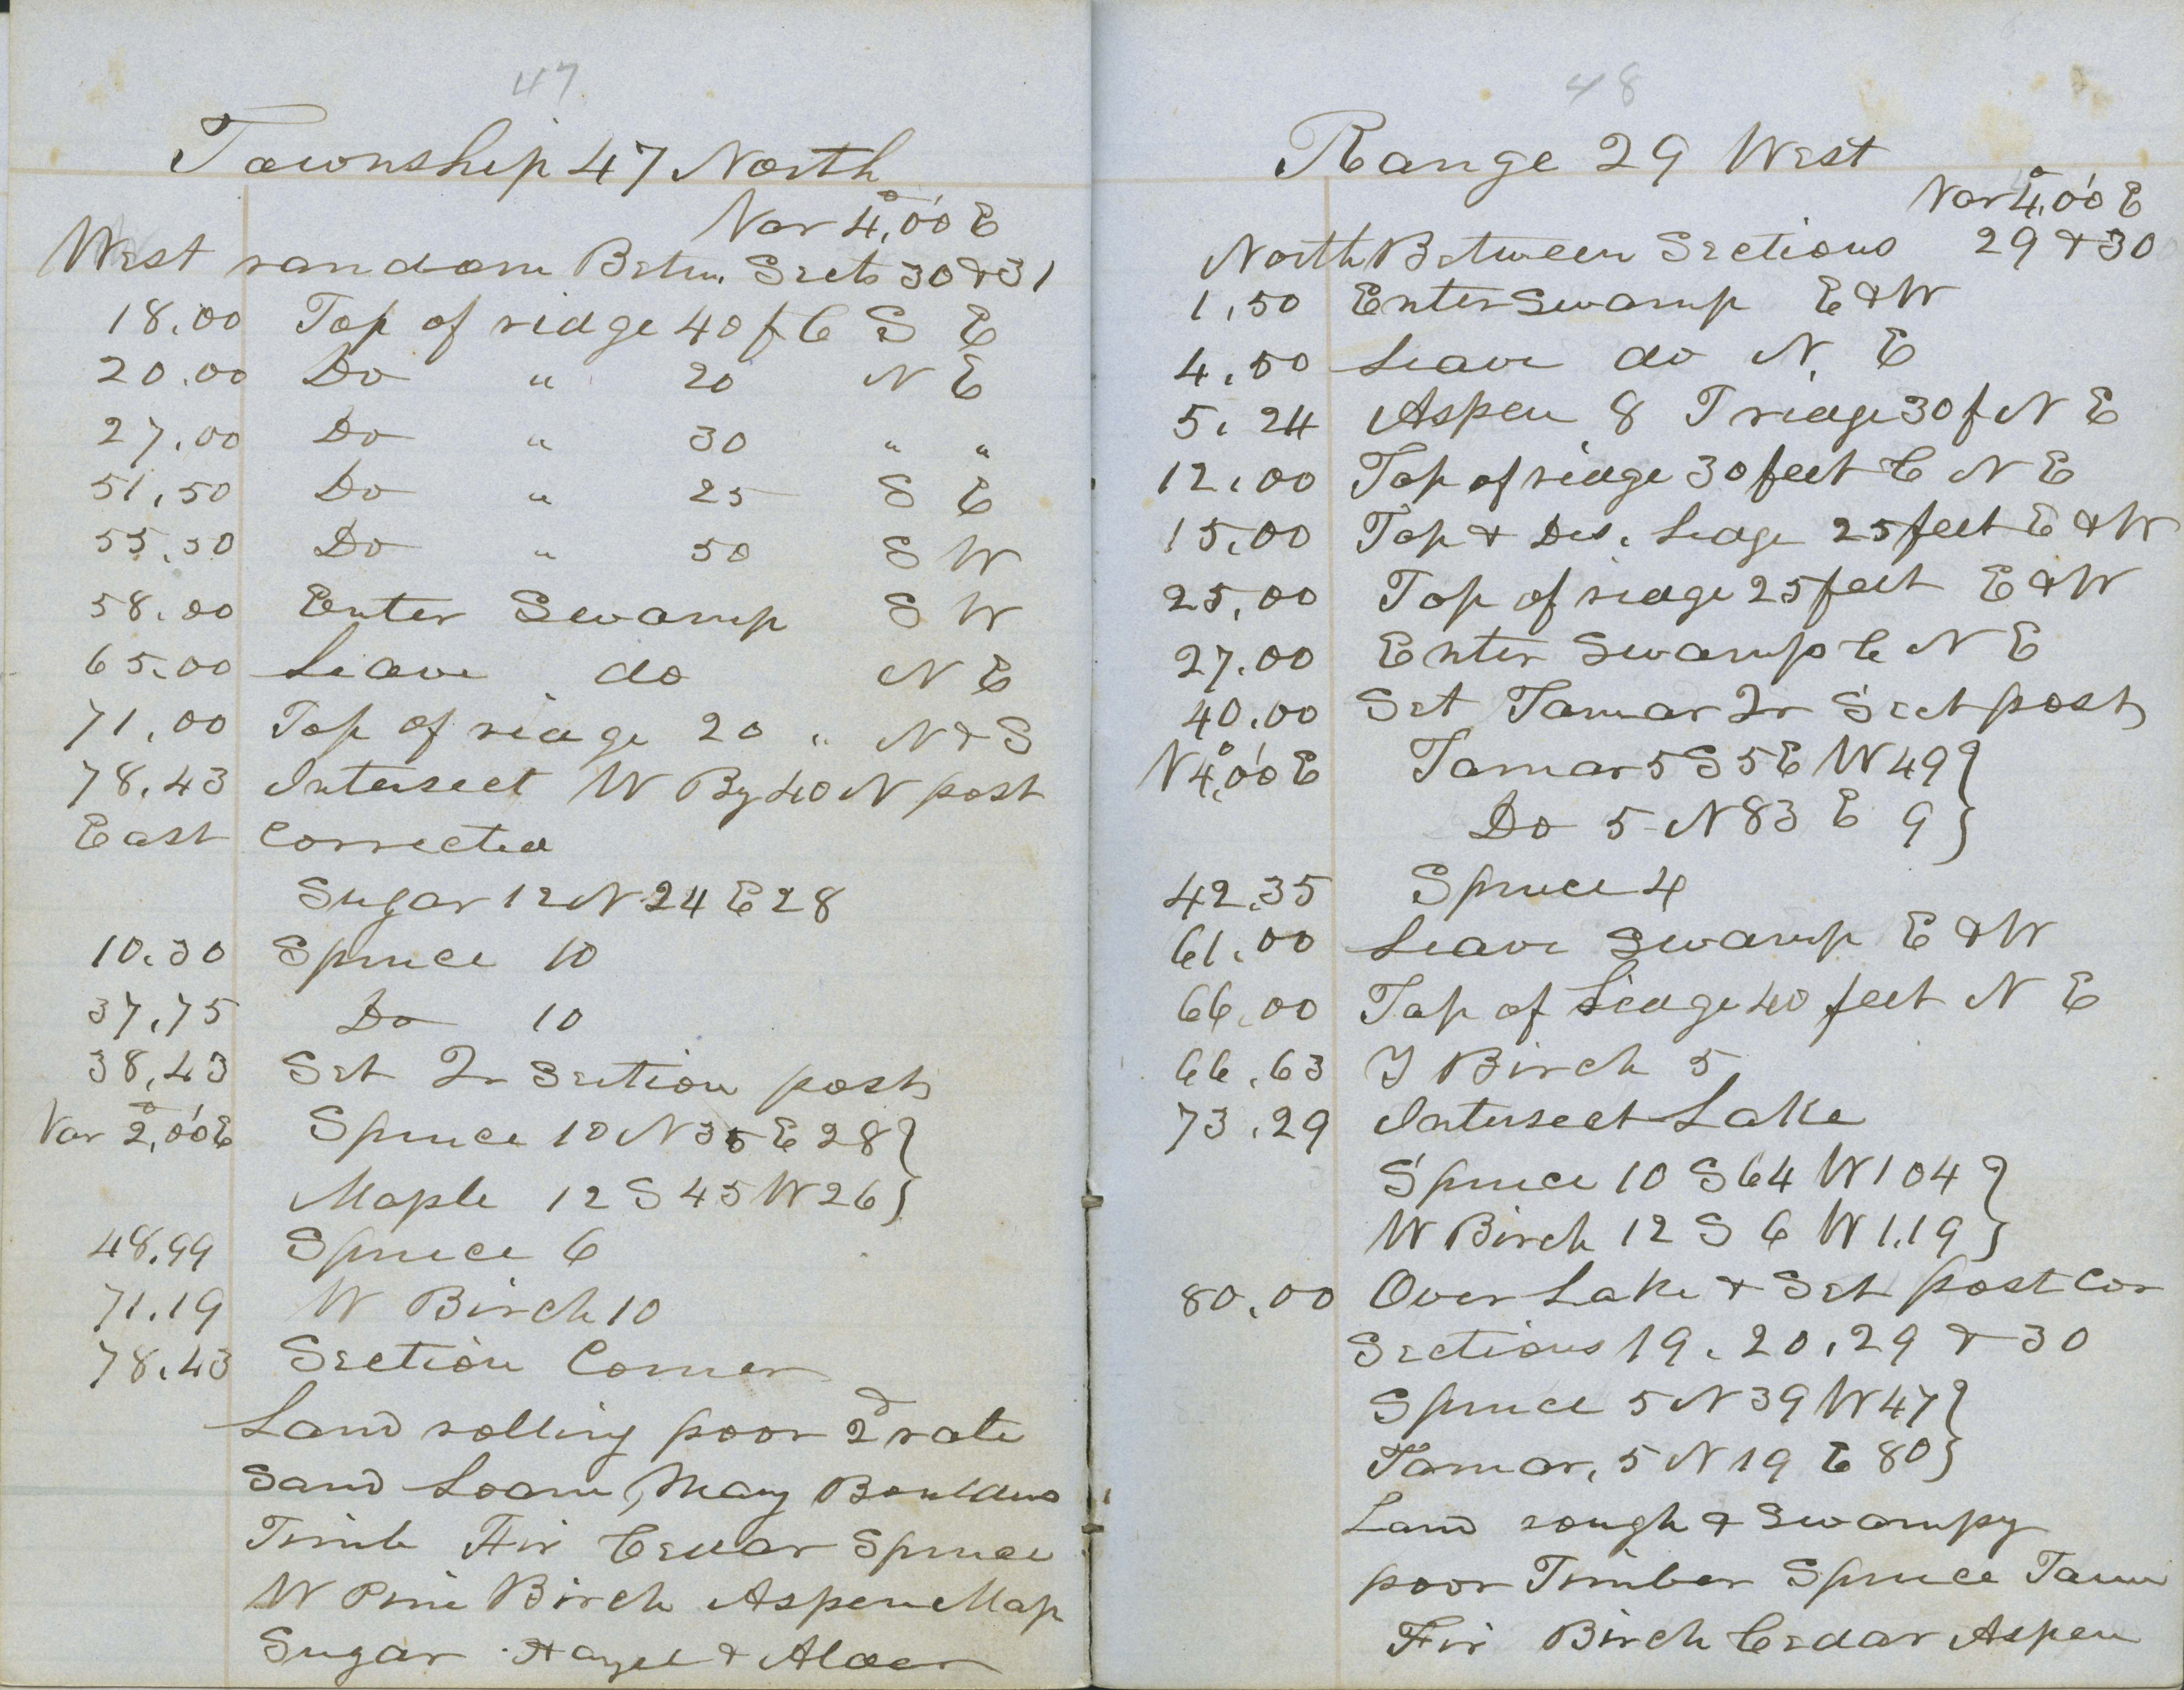 47
Township 47 North
Var 4°,00' E
West random Betw. Sects 30 & 31
18.00 Top of ridge 40 f C S E
20.00 Do " 20 N E
27.00 Do " 30 " "
51.50 Do " 25 S E
55.50 Do " 50 S W
58.00 Enter Swamp S W
65.00 Leave do N E
71.00 Top of ridge 20 " N & S
78.43 Intersect W By 40 N post
East Corrected
Sugar 12 N 24 E 28
10.30 Spruce 10
37.75 Do 10
38.43 Set Qr Section post
Var 2°,00' E Spruce 10 N 35 E 28 }
Maple 12 S 45 W 26 }
48.99 Spruce 6
71.19 W Birch 10
78.43 Section Corner
Land rolling poor 2d rate
Sand Loam, Many Boulders
Timb Fir Cedar Spruce
W Pine Birch Aspen Map
Sugar Hazel & Alder
48
Range 29 West
Var 4°,00' E
North Between Sections 29 & 30
1.50 Enter Swamp E & W
4.50 Leave do N. E
5.24 Aspen 8 T ridge 30 f N E
12.00 Top of ridge 30 feet C N E
15.00 Top & Des. Ledge 25 feet E & W
25.00 Top of ridge 25 feet E & W
27.00 Enter Swamp C N E
40.00 Set Tamar Qr Sect post
V 4°,00' E Tamar 5 S 5 E W 49 }
Do 5 N 83 E 9 }
42.35 Spruce 4
61.00 Leave Swamp E & W
66.00 Top of Ledge 40 feet N E
66.63 Y Birch 5
73.29 Intersect Lake
Spruce 10 S 64 W 104 }
W Birch 12 S 6 W 1.19 }
80.00 Over Lake & Set post Cor
Sections 19. 20. 29 & 30
Spruce 5 N 39 W 47 }
Tamar. 5 N 19 E 80 }
Land rough & Swampy
poor Timber Spruce Tam
Fir Birch Cedar Aspen